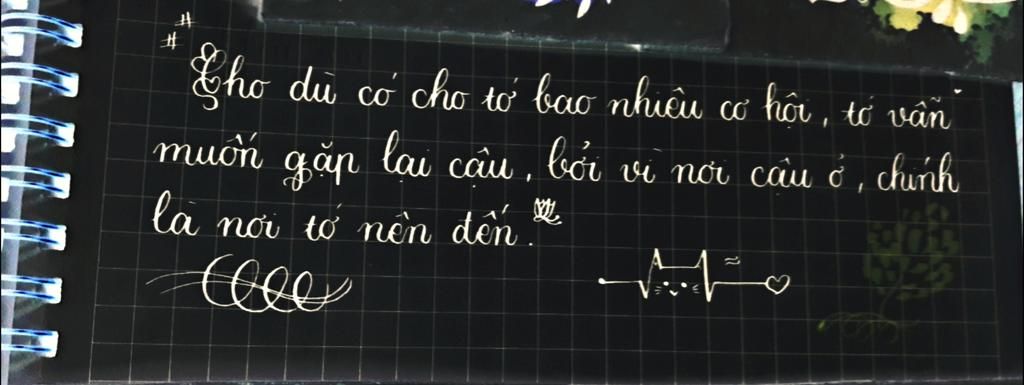 "Cho dù có cho tớ bao nhiêu cơ hội, tớ vẫn
muốn gặp lại cậu, bởi vì nơi cậu ở, chính
là nơi tớ nên đến."